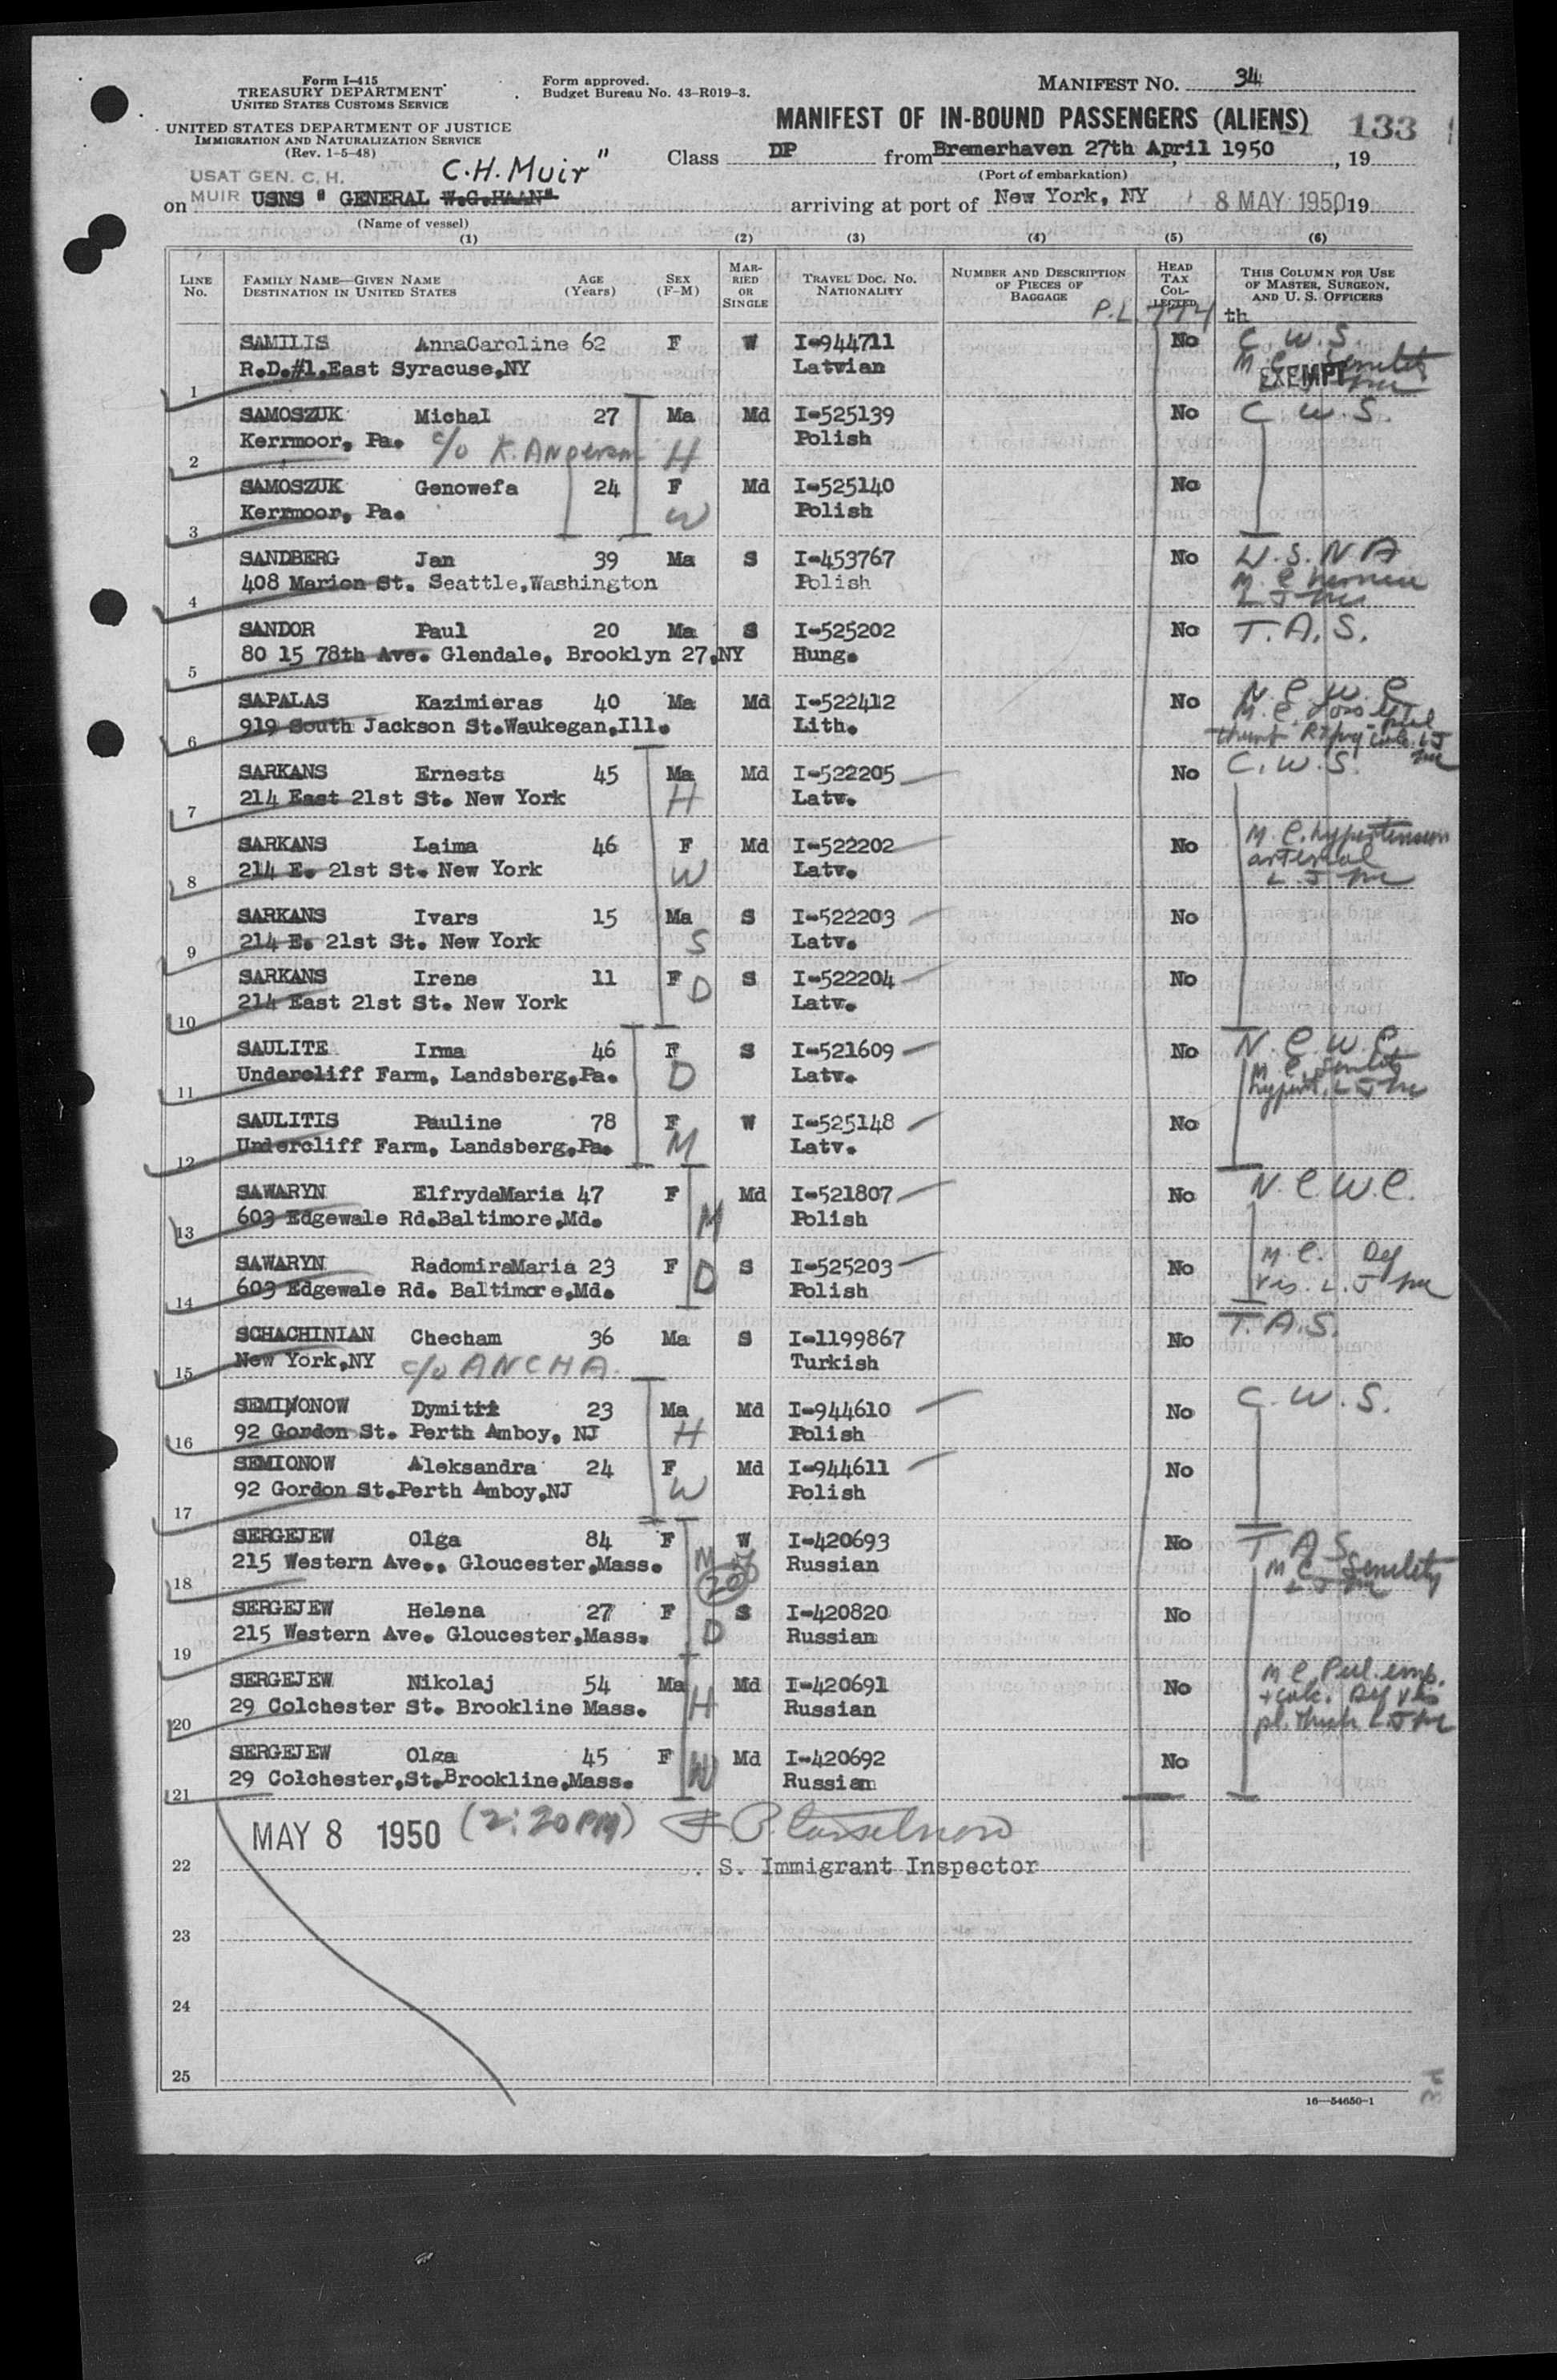 Form I-415
TREASURY DEPARTMENT
UNITED STATES CUSTOMS SERVICE
UNITED STATES DEPARTMENT OF JUSTICE
IMMIGRATION AND NATURALIZATION SERVICE
(Rev. 1-5-48)
Form approved.
Budget Bureau No. 43-R019-3.
MANIFEST NO. 34
MANIFEST OF IN-BOUND PASSENGERS (ALIENS) 133
Class DP from Bremerhaven 27th April 1950, 19
(Port of embarkation)
USAT GEN. C. H. C.H. Muir"
on MUIR USNS " GENERAL W.G.HAAN" arriving at port of New York, NY 8 MAY 1950, 19
(Name of vessel)
(1) (2) (3) (4) (5) (6)
LINE No. FAMILY NAME—GIVEN NAME DESTINATION IN UNITED STATES AGE (Years) SEX (F-M) MARRIED OR SINGLE TRAVEL DOC. NO. NATIONALITY NUMBER AND DESCRIPTION OF PIECES OF BAGGAGE HEAD TAX COLLECTED THIS COLUMN FOR USE OF MASTER, SURGEON, AND U. S. OFFICERS
P.L. 774 th
SAMILIS AnnaCaroline 62 F W I-944711 No C W S
1 R.D.#1,East Syracuse,NY Latvian M.C. Senility EXEMPT
SAMOSZUK Michal 27 Ma Md I-525139 No C W.S.
2 Kerrmoor, Pa. c/o K. Anderson H Polish
SAMOSZUK Genowefa 24 F Md I-525140 No
3 Kerrmoor, Pa. W Polish
SANDBERG Jan 39 Ma S I-453767 No U.S.N A
4 408 Marion St. Seattle,Washington Polish M.C. hernia
SANDOR Paul 20 Ma S I-525202 No T.A.S.
5 80 15 78th Ave. Glendale, Brooklyn 27,NY Hung.
SAPALAS Kazimieras 40 Ma Md I-522412 No N.C.W.C
6 919 South Jackson St.Waukegan,Ill. Lith. M.C. loss thumb
SARKANS Ernests 45 Ma Md I-522205 No C.W.S.
7 214 East 21st St. New York H Latv.
SARKANS Laima 46 F Md I-522202 No M.C. hypertension
8 214 E. 21st St. New York W Latv. arterial
SARKANS Ivars 15 Ma S I-522203 No
9 214 E. 21st St. New York S Latv.
SARKANS Irene 11 F D S I-522204 No
10 214 East 21st St. New York Latv.
SAULITE Irma 46 F S I-521609 No N.C.W.C.
11 Undercliff Farm, Landsberg,Pa. D Latv. M.C. Senility hypert.
SAULITIS Pauline 78 F W I-525148 No
12 Undercliff Farm, Landsberg,Pa. M Latv.
SAWARYN ElfrydaMaria 47 F Md I-521807 No N.C.W.C.
13 603 Edgewale Rd.Baltimore,Md. M Polish
SAWARYN RadomiraMaria 23 F D S I-525203 No M.C. Def
14 603 Edgewale Rd. Baltimore,Md. Polish vis.
SCHACHINIAN Checham 36 Ma S I-1199867 No T.A.S.
15 New York,NY c/o ANCHA. Turkish
SEMINONOW Dymitri 23 Ma Md I-944610 No C.W.S.
16 92 Gordon St. Perth Amboy, NJ H Polish
SEMIONOW Aleksandra 24 F Md I-944611 No
17 92 Gordon St.Perth Amboy,NJ W Polish
SERGEJEW Olga 84 F W I-420693 No T A S
18 215 Western Ave., Gloucester,Mass. M of 20 Russian M C Senility
SERGEJEW Helena 27 F S I-420820 No
19 215 Western Ave. Gloucester,Mass. D Russian
SERGEJEW Nikolaj 54 Ma Md I-420691 No M C. Pul. emp.
20 29 Colchester St. Brookline Mass. H Russian + calc. Def vis
SERGEJEW Olga 45 F Md I-420692 No
21 29 Colchester,St.Brookline,Mass. W Russian
MAY 8 1950 (2:20PM)
22 S. Immigrant Inspector
23
24
25
16—54650-1